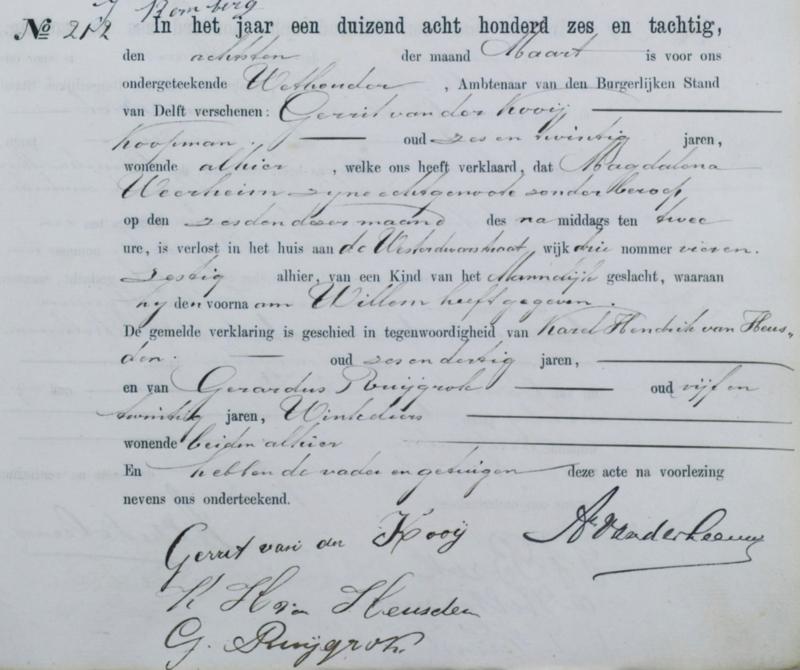 J Romberg
No 212 In het jaar een duizend acht honderd zes en tachtig,
den achtsten der maand Maart is voor ons
ondergeteekende Wethouder, Ambtenaar van den Burgerlijken Stand
van Delft verschenen: Gerrit van der Kooij
Koopman. oud zes en twintig jaren,
wonende alhier, welke ons heeft verklaard, dat Magdalena
Weerheim zyne echtgenoote zonder beroep
op den zesden dezer maand des na middags ten twee
ure, is verlost in het huis aan de Westerdwarsstraat, wijk drie nommer vier en
zestig alhier, van een Kind van het Mannelijk geslacht, waaraan
hij den voornaam Willem heeft gegeven.
De gemelde verklaring is geschied in tegenwoordigheid van Karel Hendrik van Heus„
den. oud zes en dertig jaren,
en van Gerardus Ruijgrok oud vijf en
twintig jaren, Winkeliers
wonende beiden alhier
En hebben de vader en getuigen deze acte na voorlezing
nevens ons onderteekend.
Gerrit van der Kooij A. van der Leeuw
K H van Heusden
G. Ruijgrok